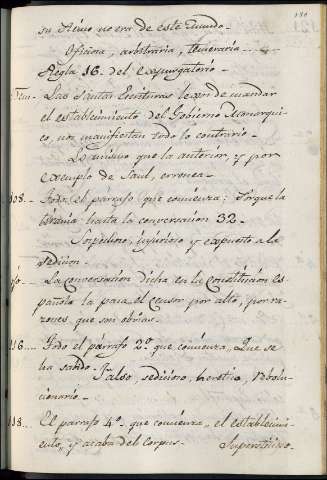 180
su Reino no era de este Mundo.
Oficiosa, arbitraria, temeraria
Regla 16. del expurgatorio.
Ytem. Las Santas Escrituras lexos de mandar
el establecimiento del Gobierno Monarqui-
co, nos manifiestan todo lo contrario.
Lo mismo que la anterior, y por
exemplo de Saul, erronea.
108. Todo el párrafo que comienza: Porque la
tiranía: hasta la conversacion 32.
Sospechoso, injurioso y expuesto a la
sedicion.
La conversacion dicha en la constitución es-
pañola la pasa el censor por alto, por ra-
zones, que son obvias.
116. Todo el párrafo 2º que comienza, Que se
ha sacado.
Falso, sedicioso, heretico, revolu-
cionario.
118. El parrafo 4º que comienza, el establecimi-
ento, y acaba del Corpus. Supersticioso.